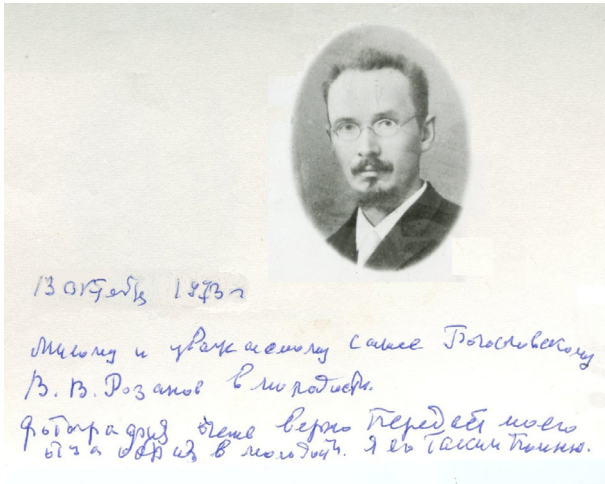 13 октября 1973 г
Милому и уважаемому Саше Богословскому
В. В. Розанов в молодости.
фотография очень верно передает моего
отца образ в молодости. Я его таким помню.